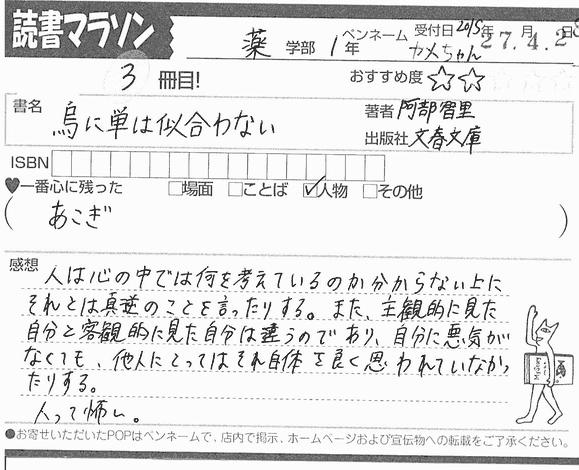 読書マラソン
薬 学部 1年 ペンネーム カメちゃん 受付日 2015年 27.4.2 月
3 冊目! おすすめ度 ☆☆
書名 烏に単は似合わない 著者 阿部智里
出版社 文春文庫
ISBN
♥一番心に残った □場面 □ことば ☑人物 □その他
( あこぎ )
感想
人は心の中では何を考えているのか分からない上に
それとは真逆のことを言ったりする。また、主観的に見た
自分と客観的に見た自分は違うのであり、自分に悪気が
なくても、他人にとってはそれ自体を良く思われていなかっ
たりする。
人って怖い。
●お寄せいただいたPOPはペンネームで、店内で掲示、ホームページおよび宣伝物への転載をご了承ください。